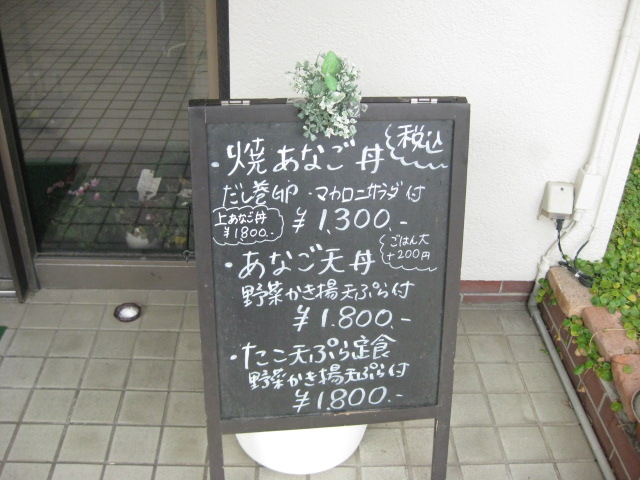 ・焼あなご丼
税込
だし巻卵・マカロニサラダ付
上あなご丼
¥1800.-
¥1,300.-
・あなご天丼
ごはん大
+200円
野菜かき揚天ぷら付
¥1.800.-
・たこ天ぷら定食
野菜かき揚天ぷら付
¥1.800.-